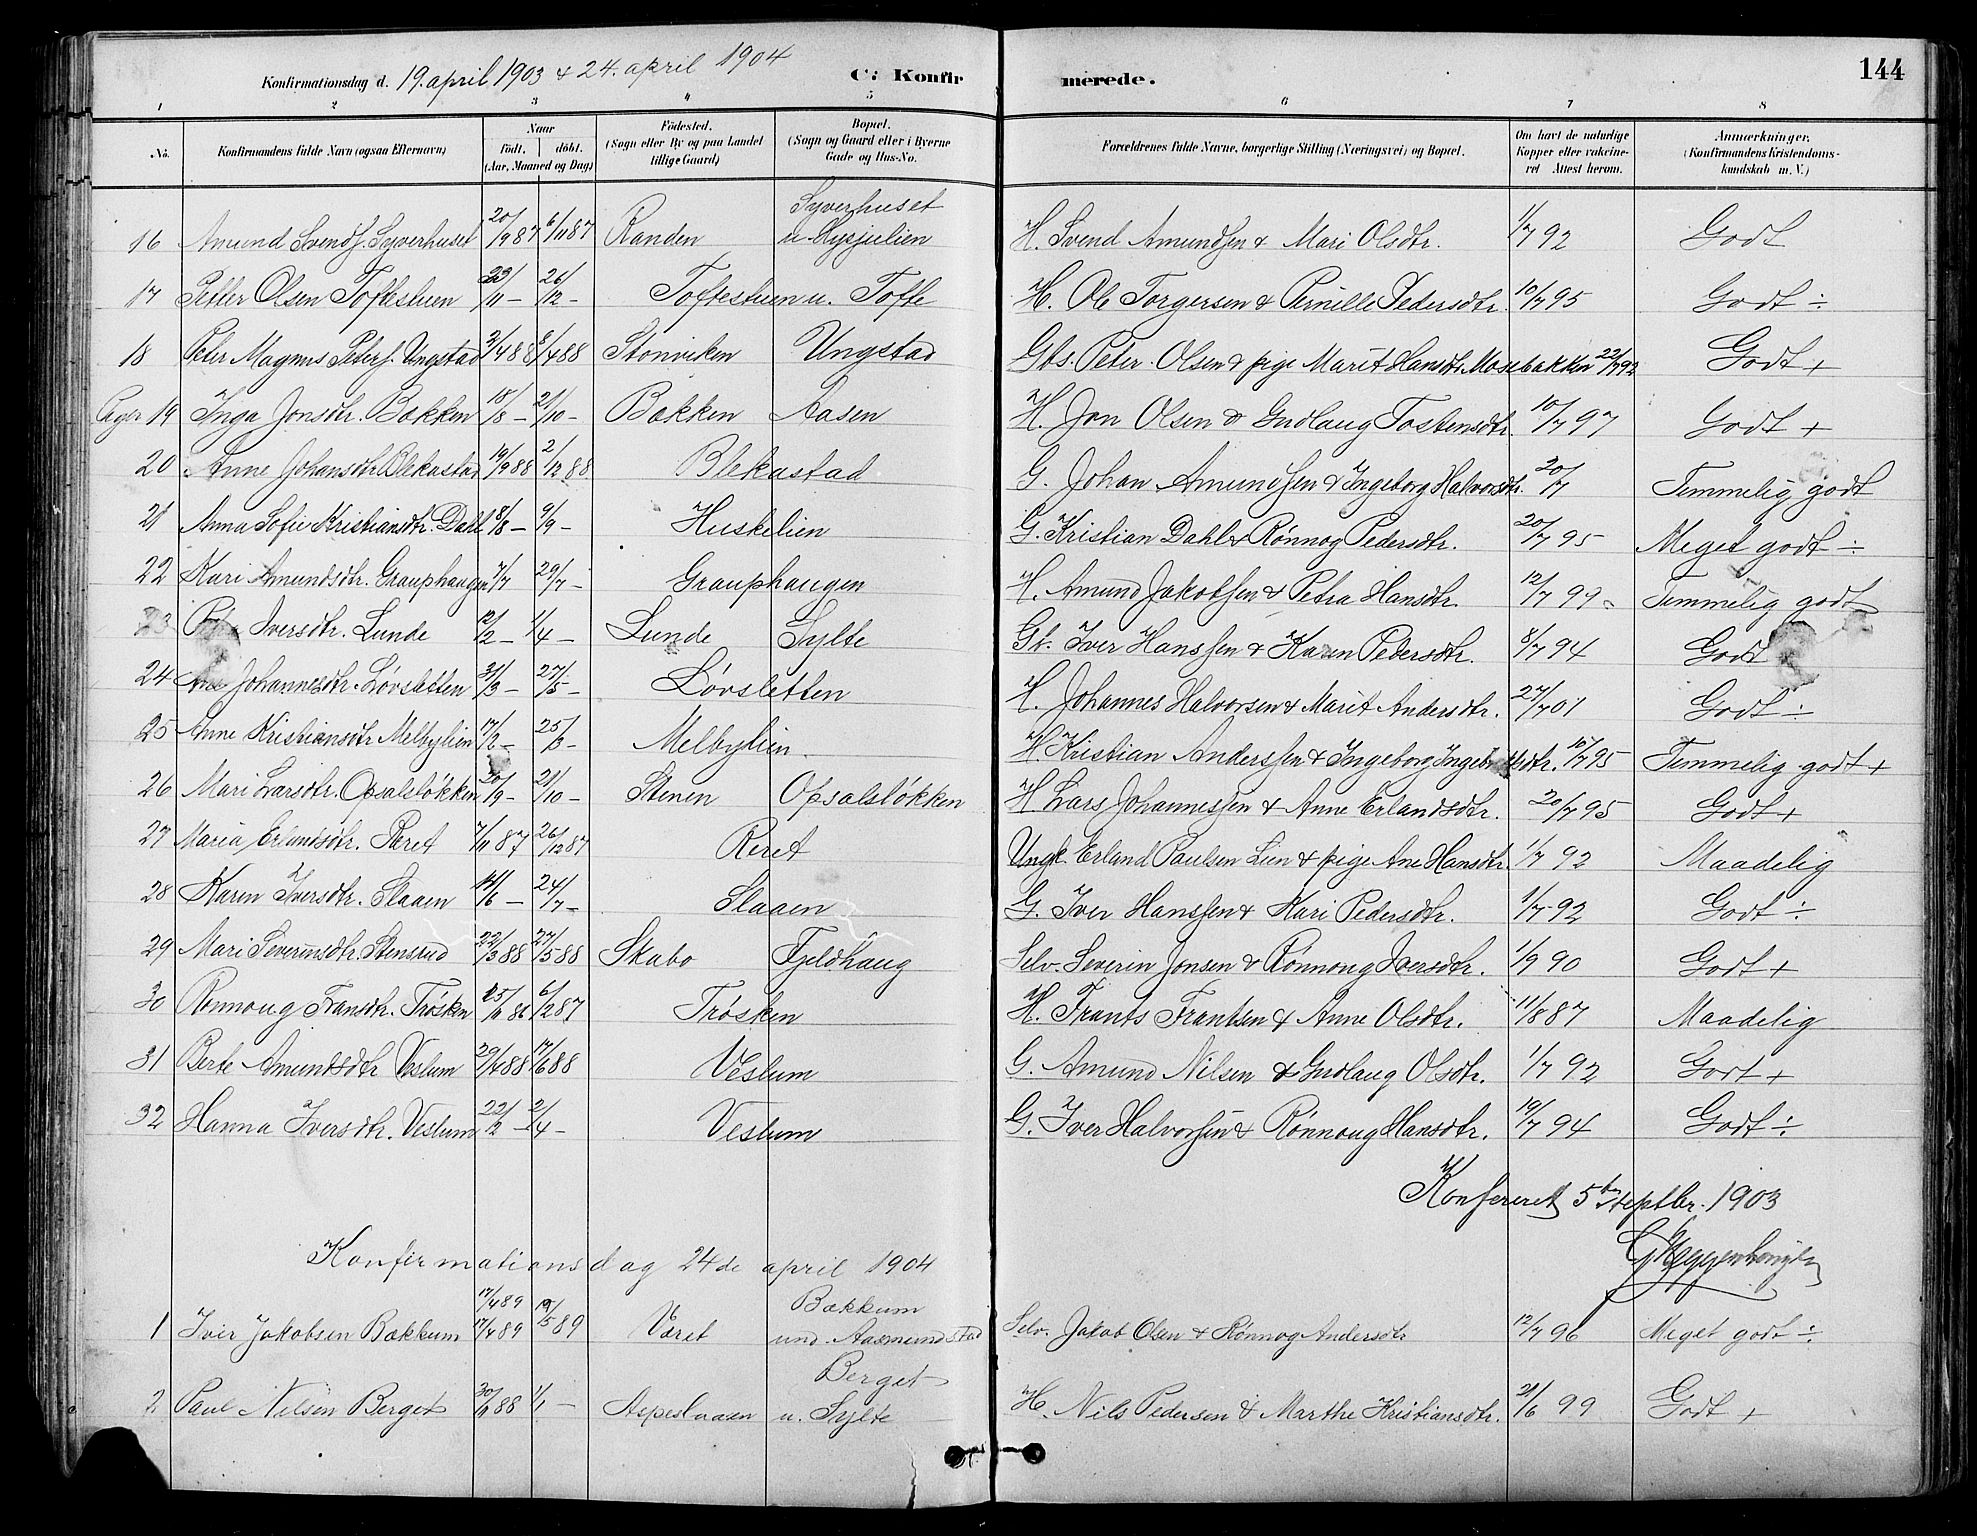 Konfirmationsdag d. 19. april 1903 & 24. april 1904 C: Konfir merede. 144
1 2 3 4 5 6 7 8
No. Konfirmandens fulde Navn (ogsaa Efternavn) Naar født. døbt. (Aar, Maaned og Dag) Fødested. (Sogn eller By og paa Landet tillige Gaard) Bopæl. (Sogn og Gaard eller i Byerne Gade og Hus-No. Forældrenes fulde Navne, borgerlige Stilling (Næringsvei) og Bopæl. Om havt de naturlige Kopper eller vakcineret Attest herom. Anmærkninger. (Konfirmandens Kristendomskundskab m. V.)
16 Amund Svends. Syverhuset 20/9 87 6/11 87 Randen Syverhuset u. H. Svend Amundsen & Mari Olsdtr. 1/7 92 Godt
17 Petter Olsen Toftestuen 23/11 - 26/12 - Toftestuen u. Tofte H. Ole Torgersen & Pernille Pedersdtr. 10/7 95 Godt ÷
18 Peter Magnus Peders. Ungstad 3/4 88 8/4 88 Stonviken Ungstad Gbs. Peter Olsen & pige Marit Hansdtr. Mosebakken 22/7 92 Godt +
19 Inga Jonsdtr. Bakken 18/8 - 21/10 - Bakken Aasen H. Jon Olsen & Gudlaug Tostensdtr. 10/7 97 Godt +
20 Anne Johansdtr. Blekastad 19/9 88 2/12 88 Blekastad G. Johan Amundsen & Ingeborg Halvorsdtr. 20/7 Temmelig godt
21 Anna Sofie Kristiansdtr. Dahl 18/8 - 9/9 - Huskelien G. Kristian Dahl & Rønnog Pedersdtr. 20/7 95 Meget godt ÷
22 Kari Amundsdtr. Grauphaugen 7/7 29/7 - Grauphaugen H. Amund Jakobsen & Petra Hansdtr. 12/7 99 Temmelig godt
23 Iversdtr. Lunde 12/2 - 1/4 - Lunde Sylte Gb. Iver Hanssen & Karen Pedersdtr. 8/7 94 Godt
24 Johannesdtr. Løvsletten 31/3 - 27/5 - Løvsletten H. Johannes Halvorsen & Marit Andersdtr. 27/7 01 Godt ÷
25 Anne Kristiansdtr. Melbylien 17/2 - 25/3 - Melbylien. H. Kristian Anderssen & Ingeborg 10/7 95 Temmelig godt +
26 Mari Larsdtr. Opsalsløkken 30/9 - 21/10 - Stenen Opsalsløkken H. Lars Johannessen & Anne Erlandsdtr. 20/7 95 Godt +
27 Maria Erlandsdtr. Reret 7/11 87 26/12 87 Reret Ungk. Erland Paulsen Lien & pige Ane Hansdtr. 1/7 92 Maadelig
28 Karen Iversdtr. Slaaen 14/6 - 24/7 - Slaaen G. Iver Hanssen & Kari Pedersdtr. 1/7 92 Godt ÷
29 Mari Severinsdtr. Stensrud 22/3 88 27/5 88 Skabo Fjeldhaug Selv. Severin Jonsen & Rønnoug Iversdtr. 1/9 90 Godt +
30 Rønnoug Fransdtr. Trøsken 25/11 86 6/2 87 Trøsken H. Frants Frantsen & Anne Olsdtr. 11/8 87 Maadelig
31 Berte Amundsdtr Veslum 29/4 88 17/6 88 Veslum G. Amund Nilsen & Gudlaug Olsdtr. 1/7 92 Godt +
32 Hanna Iversdtr. Veslum 22/2 - 2/4 - Veslum G. Iver Halvorsen & Rønnoug Hansdtr. 19/7 94 Godt ÷
Konfereret 5te septbr. 1903
Konfirmationsdag 24de april 1904
1 Iver Jakobsen Bækkum 17/4 89 17/4 89 19/5 89 Været Bækkum und. Aasmundstad Selv. Jakob Olsen & Rønnog Andersdtr 12/7 96 Meget godt ÷
2 Paul Nilsen Berget 30/11 88 1/1 - Aspeslaaen Berget u. Sylte H. Nils Pedersen & Marthe Kristiansdtr. 21/6 99 Godt +